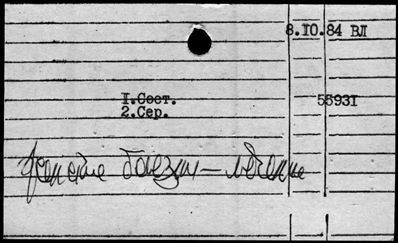 8.10.84 ВЛ
1.Сост.
2.Сер.
55931
Женские болезни - лечение